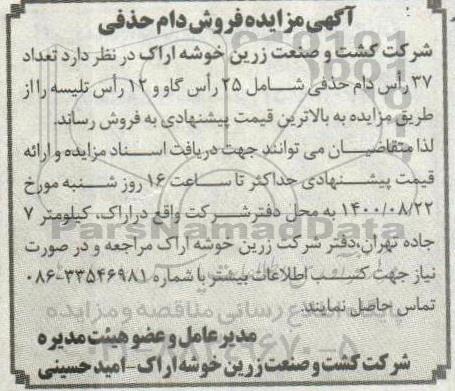 آگهی مزایده فروش دام حذفی
شرکت کشت و صنعت زرین خوشه اراک در نظر دارد تعداد
۳۷ رأس دام حذفی شامل ۲۵ رأس گاو و ۱۲ رأس تلیسه را از
طریق مزایده به بالاترین قیمت پیشنهادی به فروش رساند.
لذا متقاضیان می توانند جهت دریافت اسناد مزایده و ارائه
قیمت پیشنهادی حداکثر تا ساعت ۱۶ روز شنبه مورخ
۱۴۰۰/۰۸/۲۲ به محل دفتر شرکت واقع در اراک، کیلومتر ۷
جاده تهران، دفتر شرکت زرین خوشه اراک مراجعه و در صورت
نیاز جهت کسب اطلاعات بیشتر با شماره ۳۳۵۴۶۹۸۱-۰۸۶
تماس حاصل نمایند.
مدیرعامل و عضو هیئت مدیره
شرکت کشت و صنعت زرین خوشه اراک - امید حسینی
ParsNamadData
پایگاه اطلاع رسانی مناقصه و مزایده